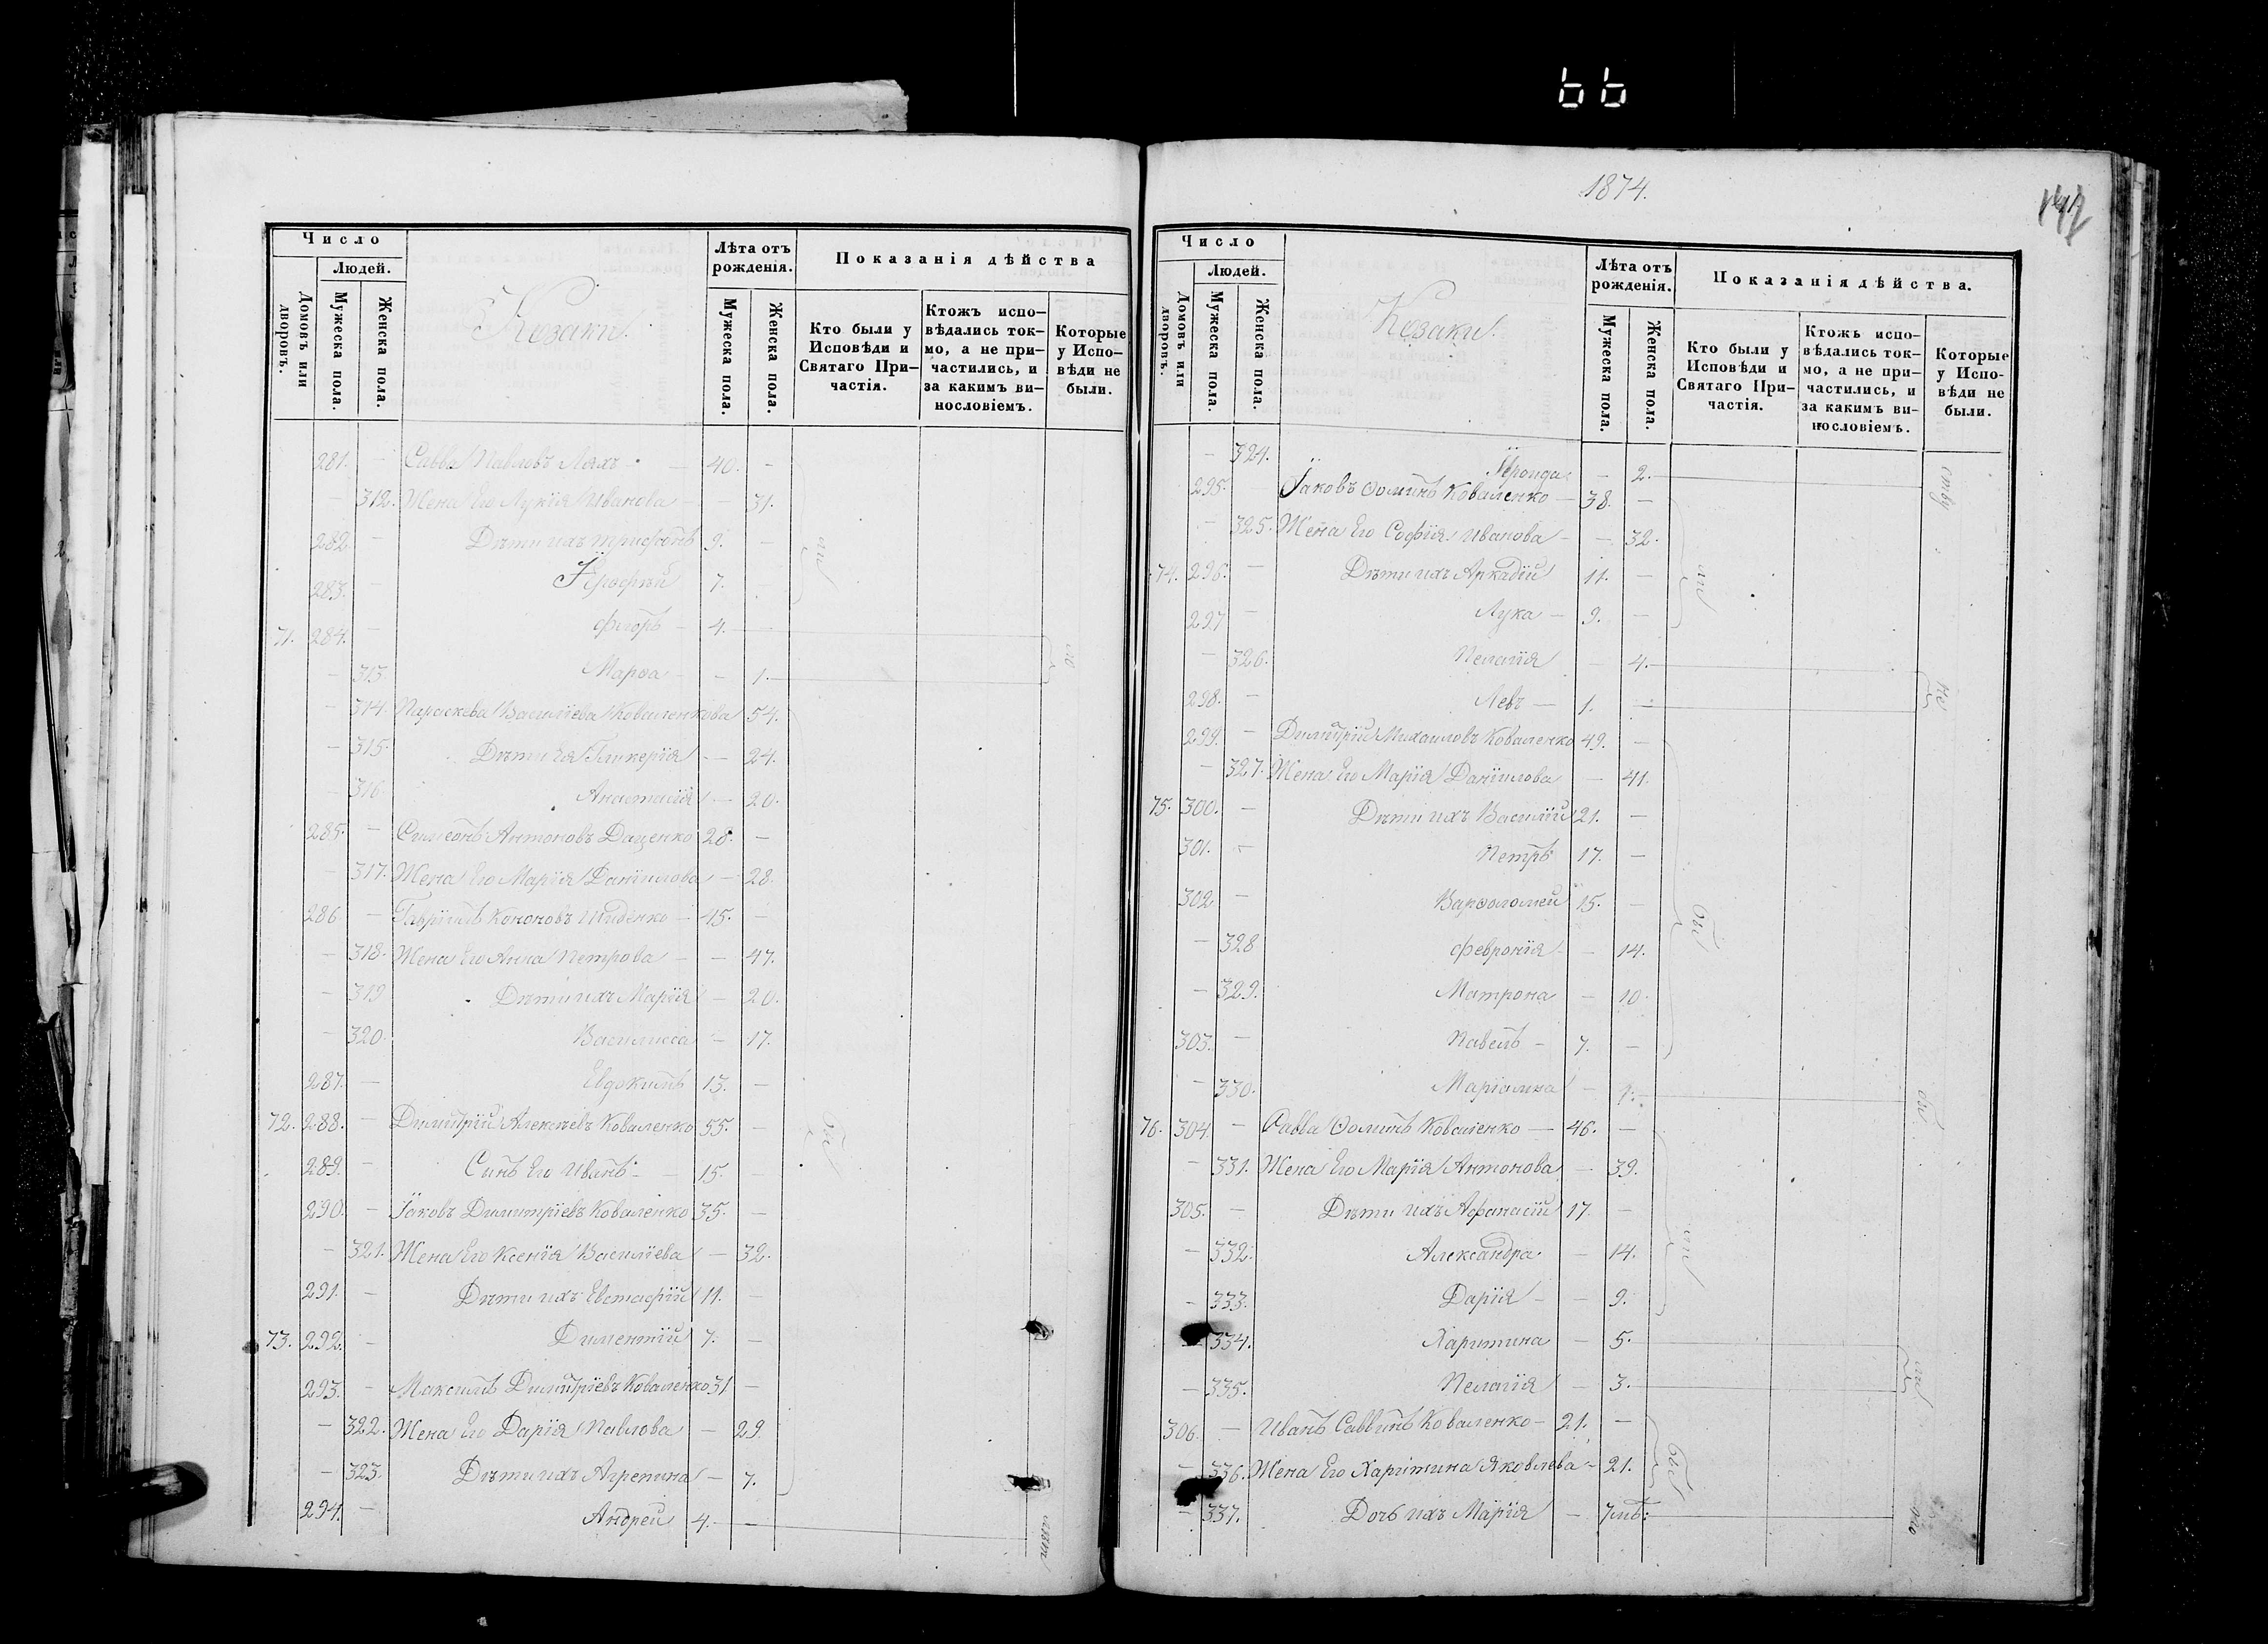 66
Число
Людей.
Домовъ или дворовъ.
Мужеска пола.
Женска пола.
Козаки.
Лѣта отъ рожденія.
Мужеска пола.
Женска пола.
Показанія дѣйства
Кто были у Исповѣди и Святаго Причастія.
Ктожъ исповѣдались токмо, а не причастились, и за какимъ винословіемъ.
Которые у Исповѣди не были.
281. — Савва Павловъ Ляхъ — 40. —
— 312. Жена Его Лукія Иванова — — 31.
282. — Дѣти ихъ Трифонъ 9. —
283. — 7.
71. 284. — Флоръ — 4. —
— 313. Марѳа — — 1.
— 314. Параскева Васильева Коваленкова 54.
— 315. Дѣти Ея Гликерія — — 24.
— 316. Анастасія — 20.
285. — Симеонъ Антоновъ Даценко 28. —
— 317. Жена Его Марія Даніилова — 28.
286. — Гавріилъ Кононовъ — 45. —
— 318. Жена Его Анна Петрова — — 47.
— 319 Дѣти ихъ Марія — 20.
— 320. Василисса — 17.
287. — Евдокимъ 13. —
72. 288. — Димитрій Алексѣевъ Коваленко 55. —
289. — Сынъ Его Иванъ — — 15.
290. — Іаковъ Димитріевъ Коваленко 35. —
— 321. Жена Его Ксенія Васильева — 32.
291. — Дѣти ихъ Евстафій 11. —
73. 292. — Диментій 7. —
293. — Максимъ Димитріевъ Коваленко 31 —
— 322. Жена Его Дарія Павлова — 29.
— 323. Дѣти ихъ Агрепина — 7.
294. — Андрей 4. —
1874.
Число
Людей.
Домовъ или дворовъ.
Мужеска пола.
Женска пола.
Козаки.
Лѣта отъ рожденія.
Мужеска пола.
Женска пола.
Показанія дѣйства.
Кто были у Исповѣди и Святаго Причастія.
Ктожъ исповѣдались токмо, а не причастились, и за какимъ винословіемъ.
Которые у Исповѣди не были.
— 324. — 2.
295. — Іаковъ Ѳоминъ Коваленко — 38. —
— 325. Жена Его Софія Иванова — — 32.
74. 296. — Дѣти ихъ Аркадій 11. —
297 — Лука — 9. —
— 326. Пелагія — 4.
298. — Левъ — 1. —
299. — Димитрій Михаиловъ Коваленко 49. —
— 327. Жена Его Марія Даніилова — 41.
75. 300. — Дѣти ихъ Василій 21. —
301. — Петръ 17. —
302 — Варѳоломей 15. —
— 328 Февронія — — 14.
— 329. Матрона — 10.
303. — Павелъ — 7. —
— 330. Маріамна — 1.
76. 304. — Савва Ѳоминъ Коваленко — 46. —
— 331. Жена Его Марія Антонова — 39.
305. — Дѣти ихъ Афанасій 17. —
— 332. Александра — 14.
— 333. Дарія — — 9.
— 334. Харитина — 5.
— 335. Пелагія — 3.
306. — Иванъ Саввинъ Коваленко — 21. —
— 336. Жена Его Харитина Яковлева — 21.
— 337. Дочь ихъ Марія —